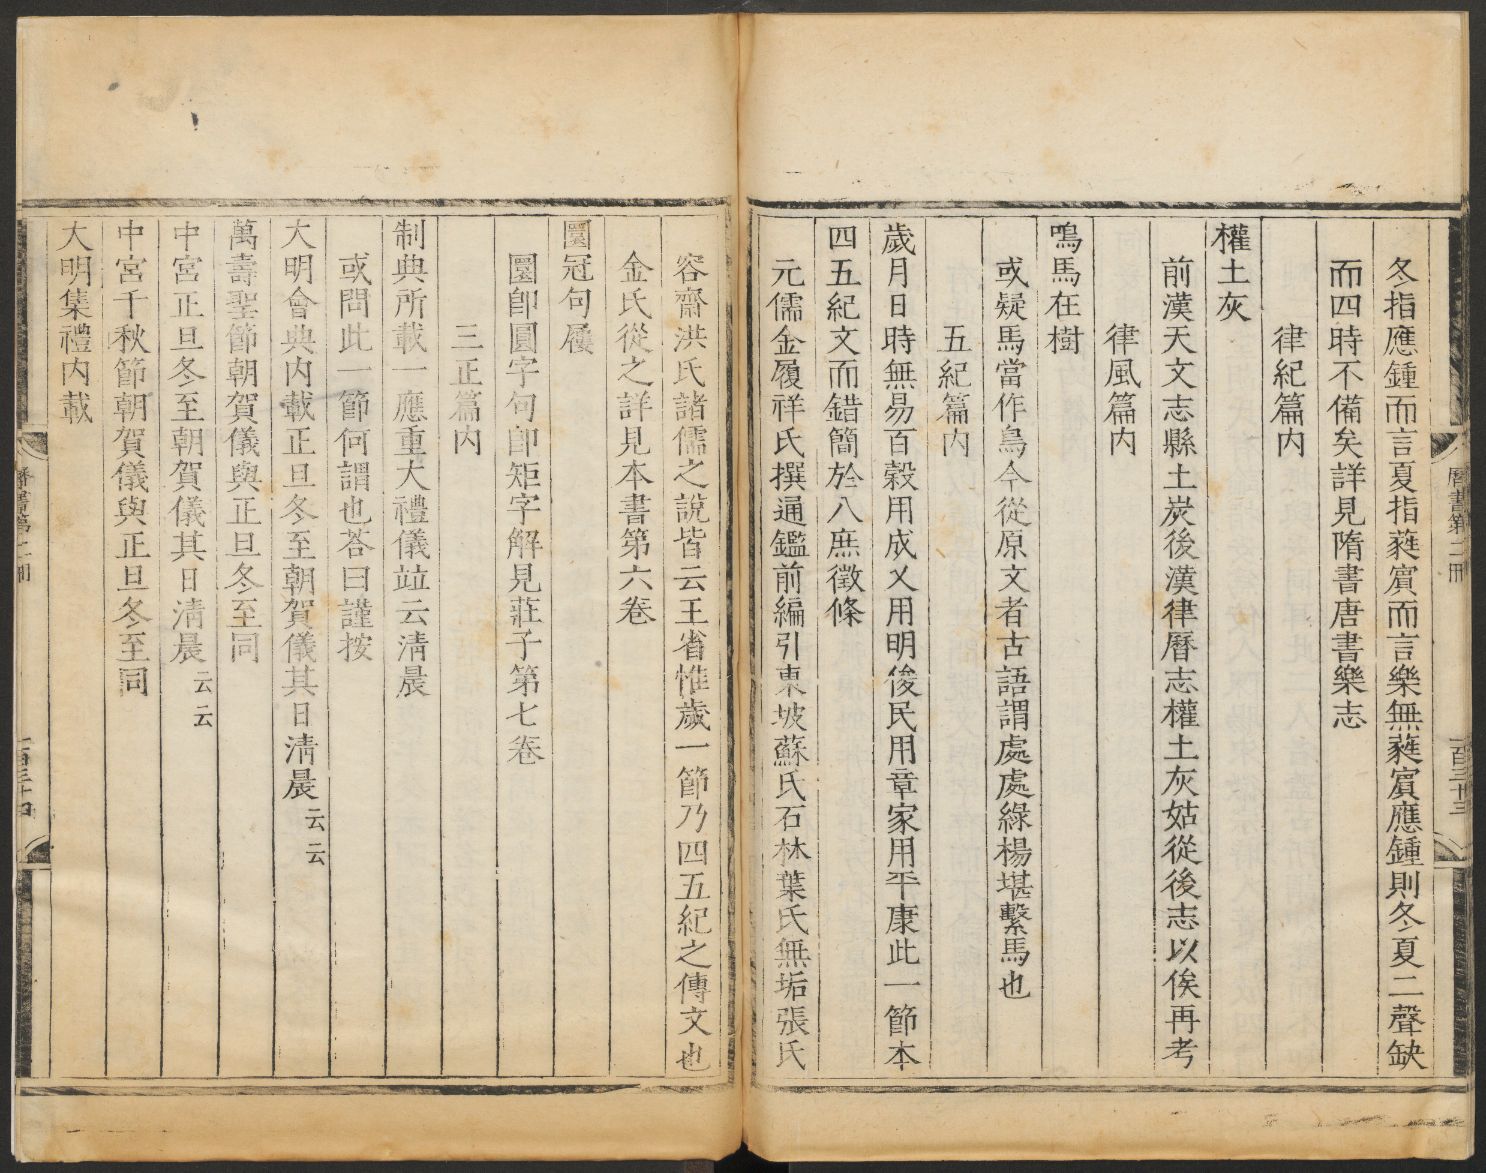 冬指應鍾而言夏指蕤賔而言樂無蕤賔應鍾則冬夏二聲缺
而四時不備矣詳見隋書唐書樂志
律紀篇内
權土灰
前漢天文志縣土炭後漢律曆志權土灰姑從後志以俟再考
律風篇内
鳴馬在樹
或疑馬當作鳥今從原文者古語謂處處綠楊堪繫馬也
五紀篇内
歲月日時無易百穀用成乂用明俊民用章家用平康此一節本
四五紀文而錯簡於八庶徵條
元儒金履祥氏撰通鑑前編引東坡蘇氏石林葉氏無垢張氏
曆書第二冊
一百三十三
容齋洪氏諸儒之說皆云王省惟歲一節乃四五紀之傳文也
金氏從之詳見本書第六卷
圜冠句屨
圜卽圓字句卽矩字解見莊子第七卷
三正篇内
制典所載一應重大禮儀竝云清晨
或問此一節何謂也荅曰謹按
大明會典内載正旦冬至朝賀儀其日清晨云云
萬壽聖節朝賀儀與正旦冬至同
中宮正旦冬至朝賀儀其日清晨云云
中宮千秋節朝賀儀與正旦冬至同
大明集禮内載
曆書第二冊
一百三十四